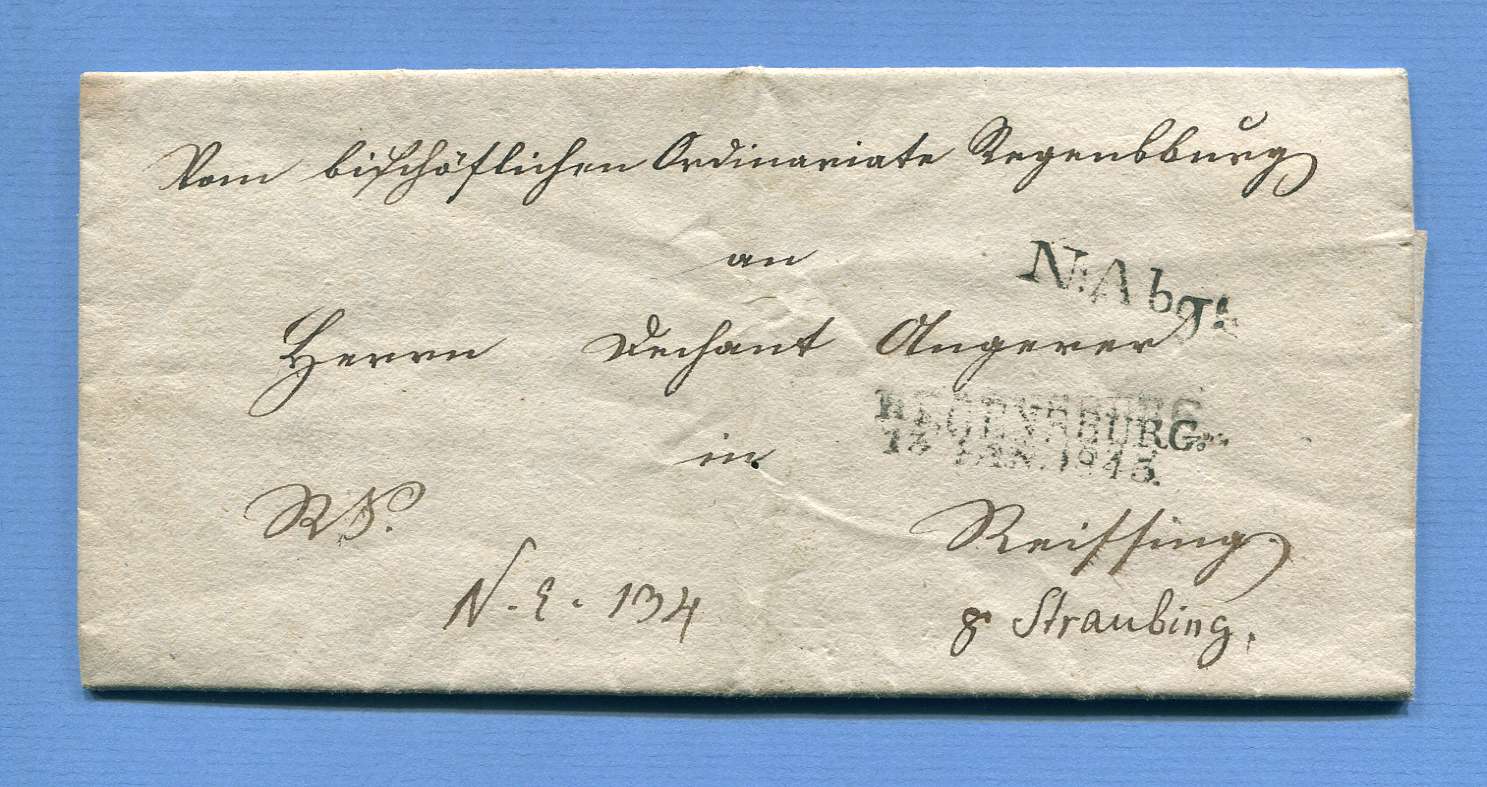 Vom bischöflichen Ordinariate Regensburg
an
N: Abg:
Herrn Dechant Angerer
REGENSBURG.
13 JAN. 1845.
in
RS.
Reissing
N. E. 134
p Straubing.